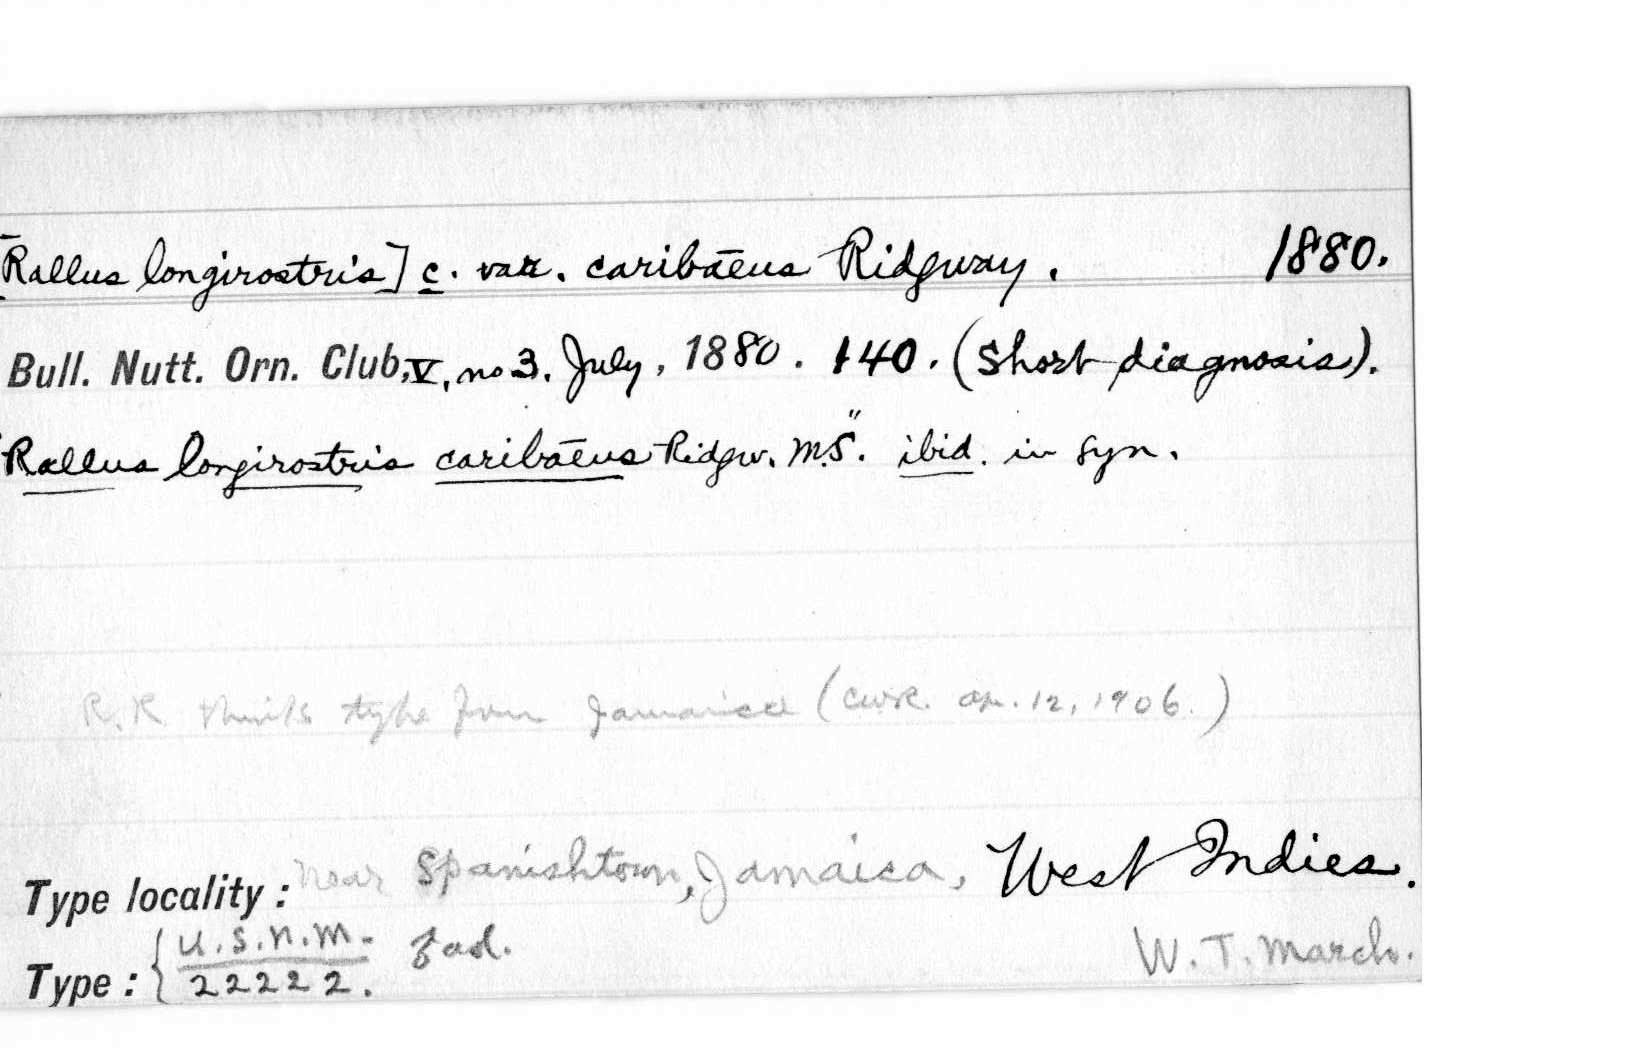 [Rallus longirostris] c. var. caribaeus Ridgway. 1880.
Bull. Nutt. Orn. Club, V, no 3, July, 1880. 140. (Short diagnosis).
"Rallus longirostris caribaeus Ridgw. M.S." ibid. in syn.
R. R thinks type from Jamaica (CWR. Ap. 12, 1906.)
Type locality: near Spanishtown, Jamaica, West Indies.
Type: { U.S.N.M. ad. W. T. March.
22222.